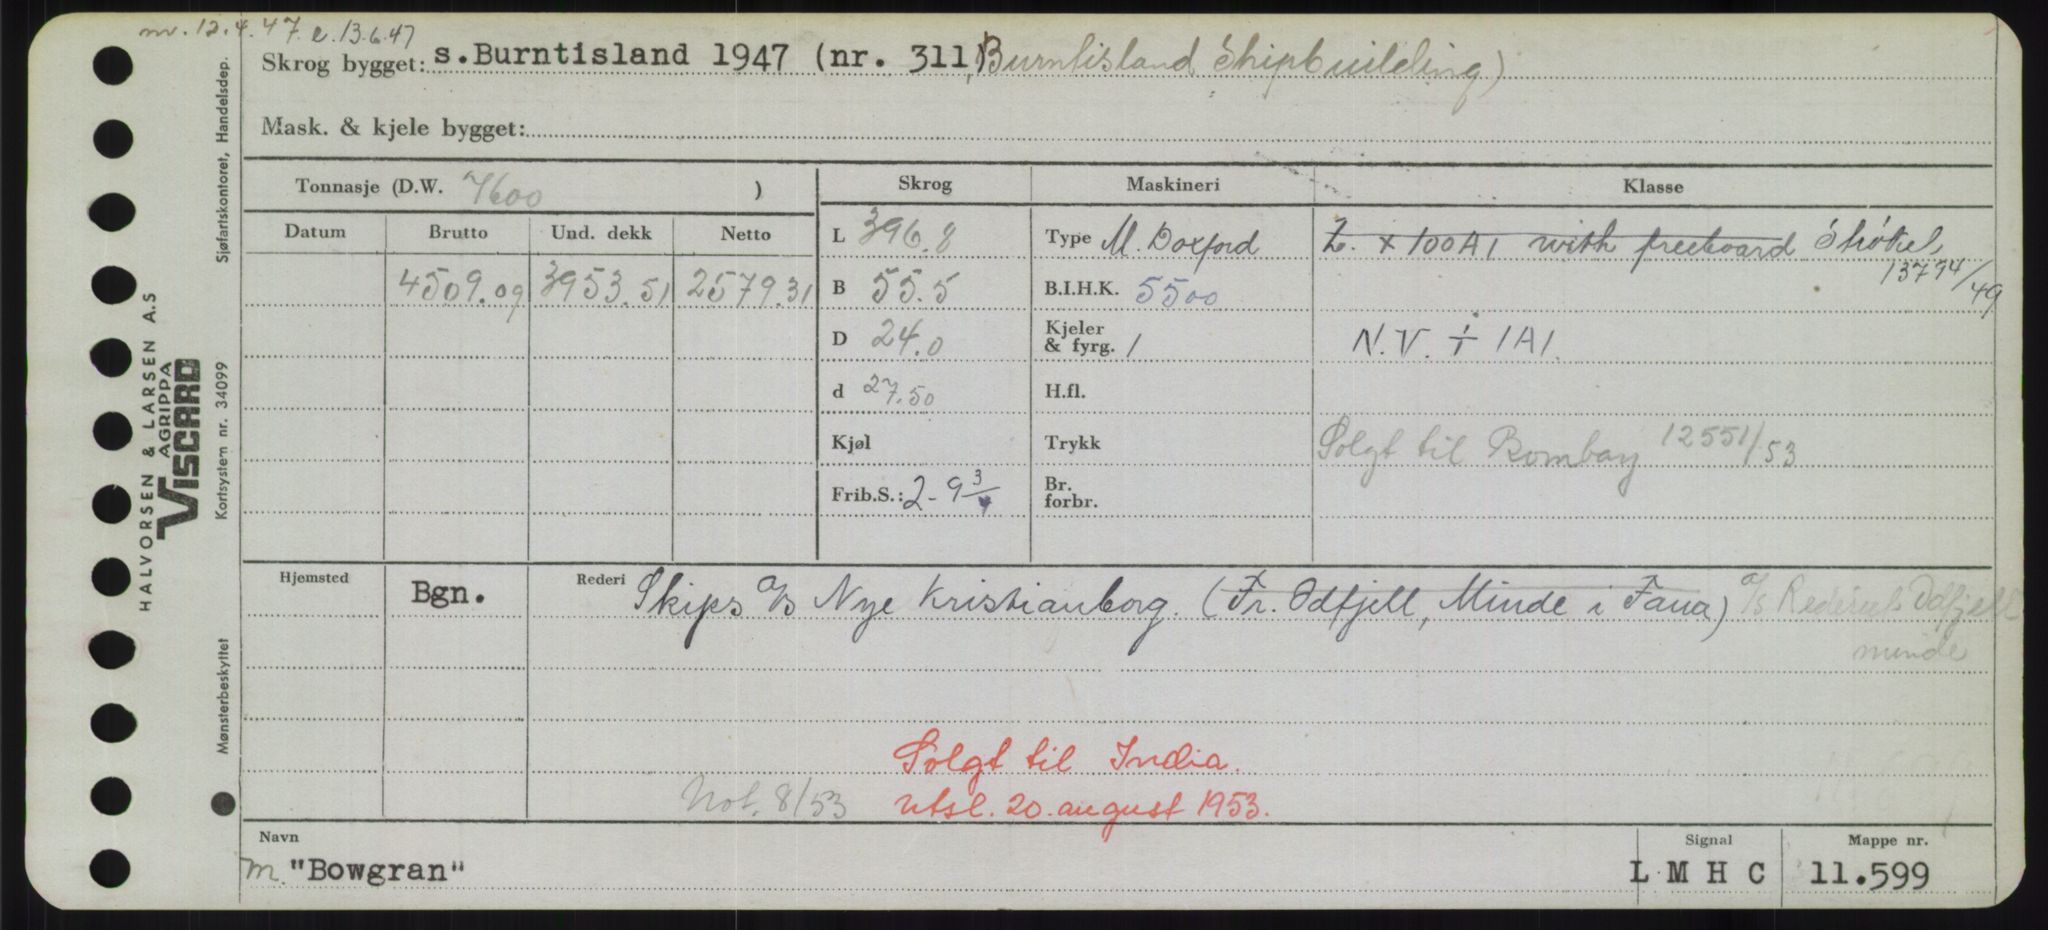 m. 12.4.47 e. 13.6.47
Skrog bygget: s.Burntisland 1947 (nr. 311, Burntisland Shipbuilding)
Mask. & kjele bygget:
Tonnasje (D.W. 7600 )
Skrog
Maskineri
Klasse
Datum
Brutto
Und. dekk
Netto
4509.09
3953.51
2579.31
L 396.8
B 55.5
D 24.0
d 27.50
Kjøl
Frib.S.: 2-9 3/4
Type M. Doxford
B.I.H.K. 5500
Kjeler & fyrg. 1
H.fl.
Trykk
Br. forbr.
L. + 100A1 with freeboard Strøket
13794/49
N.V. + 1A1.
Solgt til Bombay 12551/53
Hjemsted
Bgn.
Rederi Skips a/s Nye Kristianborg. (Fr. Odfjell, Minde i Fana) a/s Rederiet Odfjell
minde
Solgt til India.
Not. 8/53 utsl. 20. august 1953.
Navn
m. "Bowgran"
Signal
L M H C
Mappe nr.
11.599
Sjøfartskontoret, Handelsdep.
HALVORSEN & LARSEN A.S
AGRIPPA
VISCARD
Kortsystem nr. 34099
Mønsterbeskyttet